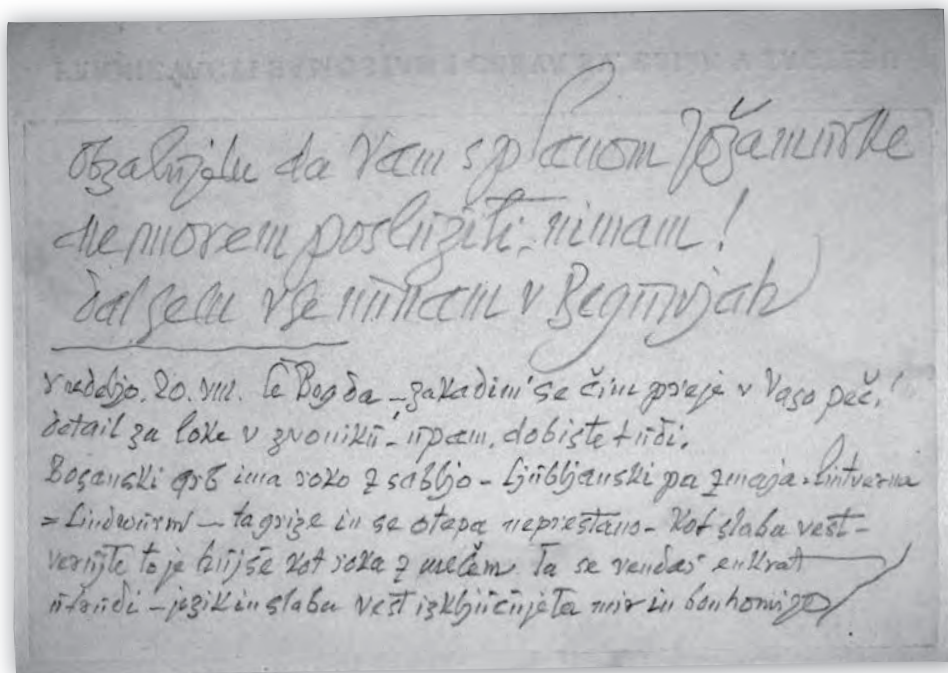 da Vam s planom Jožamurke
ne morem poslužiti - nimam!
vse v Begunjah
v nedeljo. 20. VIII. če Bog da – zakadim se čim preje v Vašo peč!
detail za loke v zvoniku – upam, dobiste tudi.
Bosanski grb ima roko z sabljo – Ljubljanski pa zmaja. Lintverna
= Lindwurm – ta grize in se otepa neprestano – kot slaba vest –
verujte to je hujše kot roka z mečem. Ta se vendar enkrat
utrudi – jezik in slaba vest izključujeta mir in bonhomijo